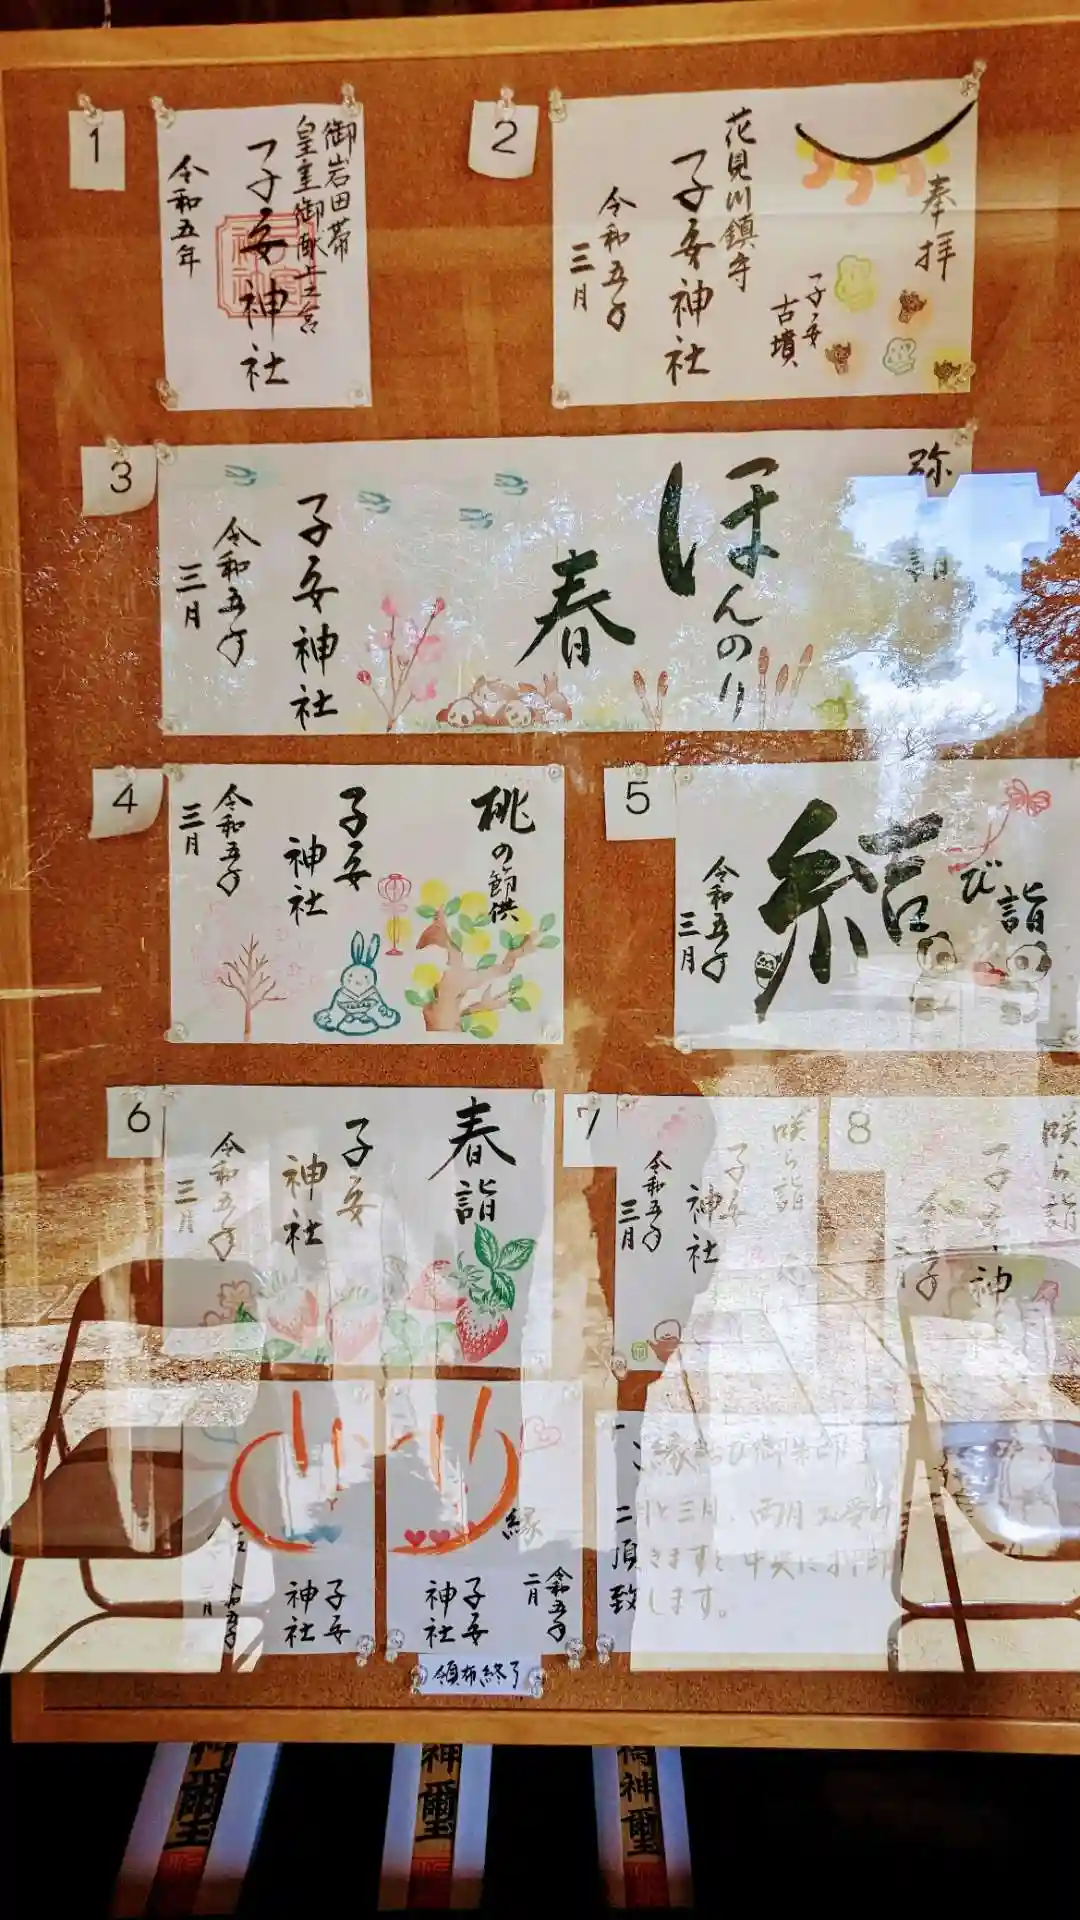 1
御岩田帯
皇室御献上之宮
子安神社
令和五年
2
奉拝
子安
古墳
花見川鎮守
子安神社
令和五年
三月
3
弥
詣
ほんのり
春
子安神社
令和五年
三月
4
桃の節供
子安
神社
令和五年
三月
5
結
び
詣
令和五年
三月
6
春
詣
子安
神社
令和五年
三月
7
咲ら詣
子安
神社
令和五年
三月
8
咲ら詣
子安神
令和五年
子安
神社
縁
令和五年
二月
子安
神社
頒布終了
縁結び御朱印
二月と三月、両月お受け
頂きますと中央に
致します。
神璽
神璽
神璽